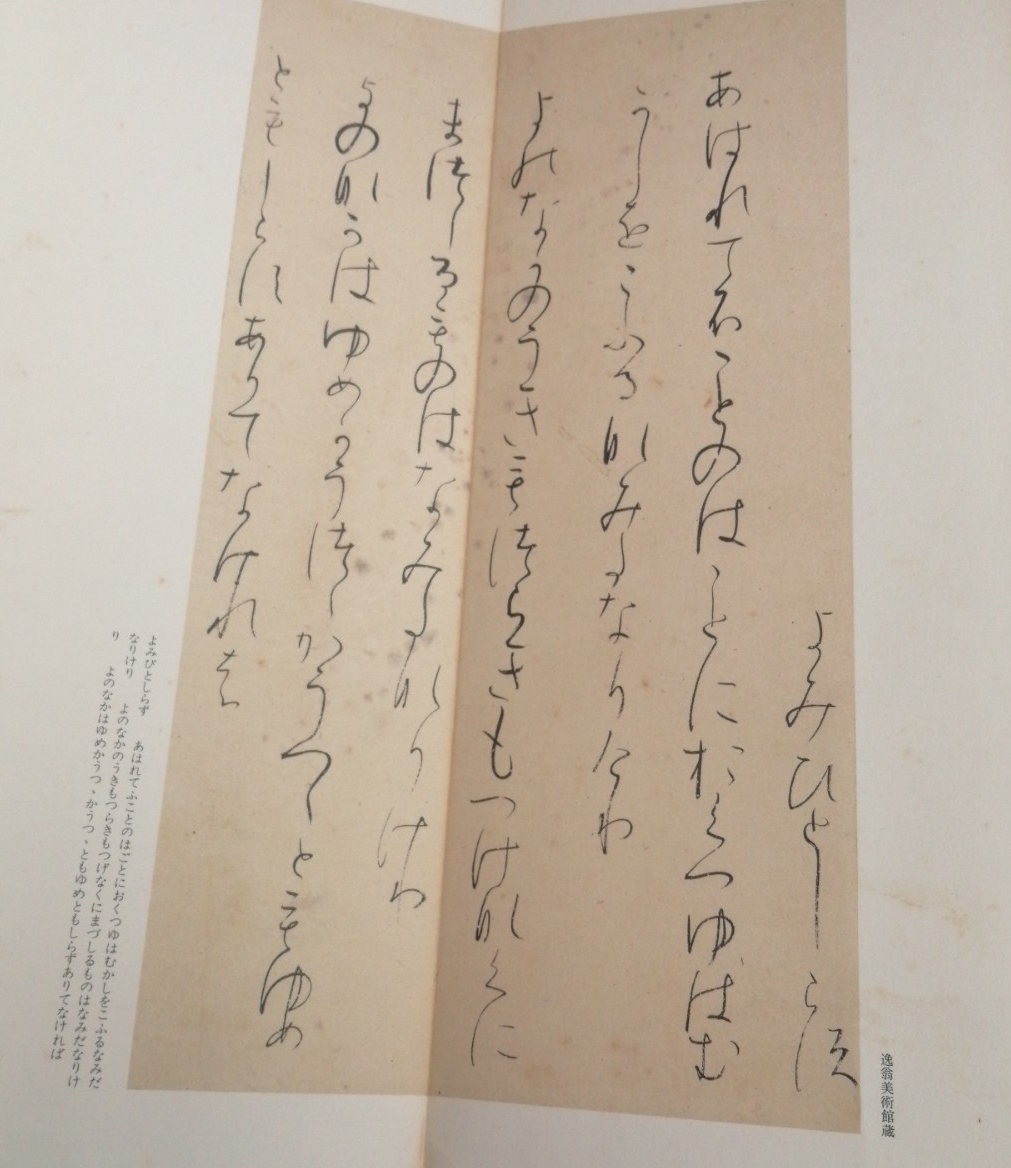 逸翁美術館蔵
よみひとしらす
あはれてふことのはことにおくつゆはむ
かしをこふるなみたなりけり
よのなかのうきもつらきもつけなくに
まつしるものはなみたなりけり
よのなかはゆめかうつゝかうつゝともゆめ
ともしらすありてなけれは
よみびとしらず　あはれてふことのはごとにおくつゆはむかしをこふるなみだ
なりけり　よのなかのうきもつらきもつげなくにまづしるものはなみだなりけ
り　よのなかはゆめかうつゝかうつゝともゆめともしらずありてなければ